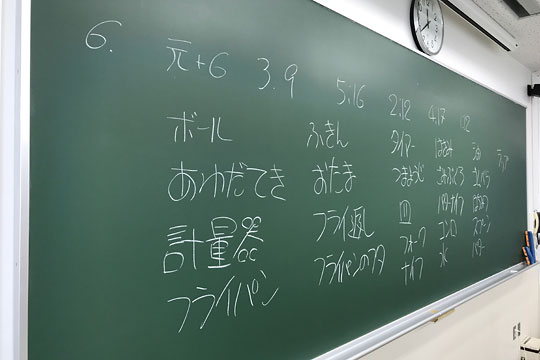 6.
元+6 3.9 5:16 2:12
ボール
あわだてき
計量器
フライパン
ふきん
おたま
フライ返し
フライパンのフタ
タイマー
つまようじ
皿
フォーク
ナイフ
はさみ
バターナイフ
コンロ
水
はちみつ
スプーン
バター